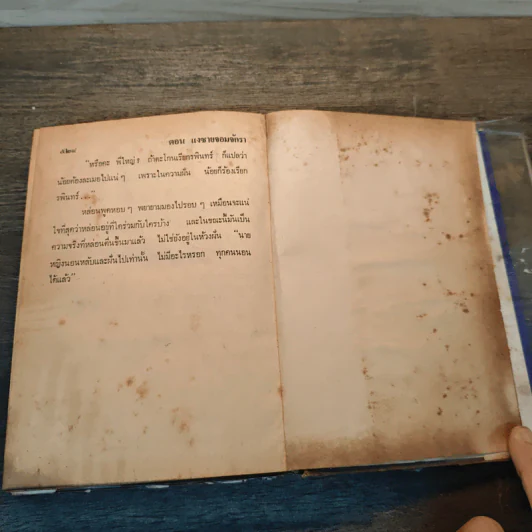 ๕๒๘
ตอน แงซายจอมจักรา
"หรือคะ พี่ใหญ่! ถ้าตะโกนเรียกรพินทร์ ก็แปลว่า
น้อยต้องละเมอไปแน่ ๆ เพราะในความฝัน น้อยก็ร้องเรียก
รพินทร์ ..."
หล่อนพูดหอบ ๆ พยายามมองไปรอบ ๆ เหมือนจะแน่
ใจที่สุดว่าหล่อนอยู่ที่ใครร่วมกับใครบ้าง และในขณะนี้มันเป็น
ความจริงที่หล่อนตื่นขึ้นมาแล้ว ไม่ใช่ยังอยู่ในห้วงฝัน "นาย
หญิงนอนหลับและฝันไปเท่านั้น ไม่มีอะไรหรอก ทุกคนนอน
ได้แล้ว"